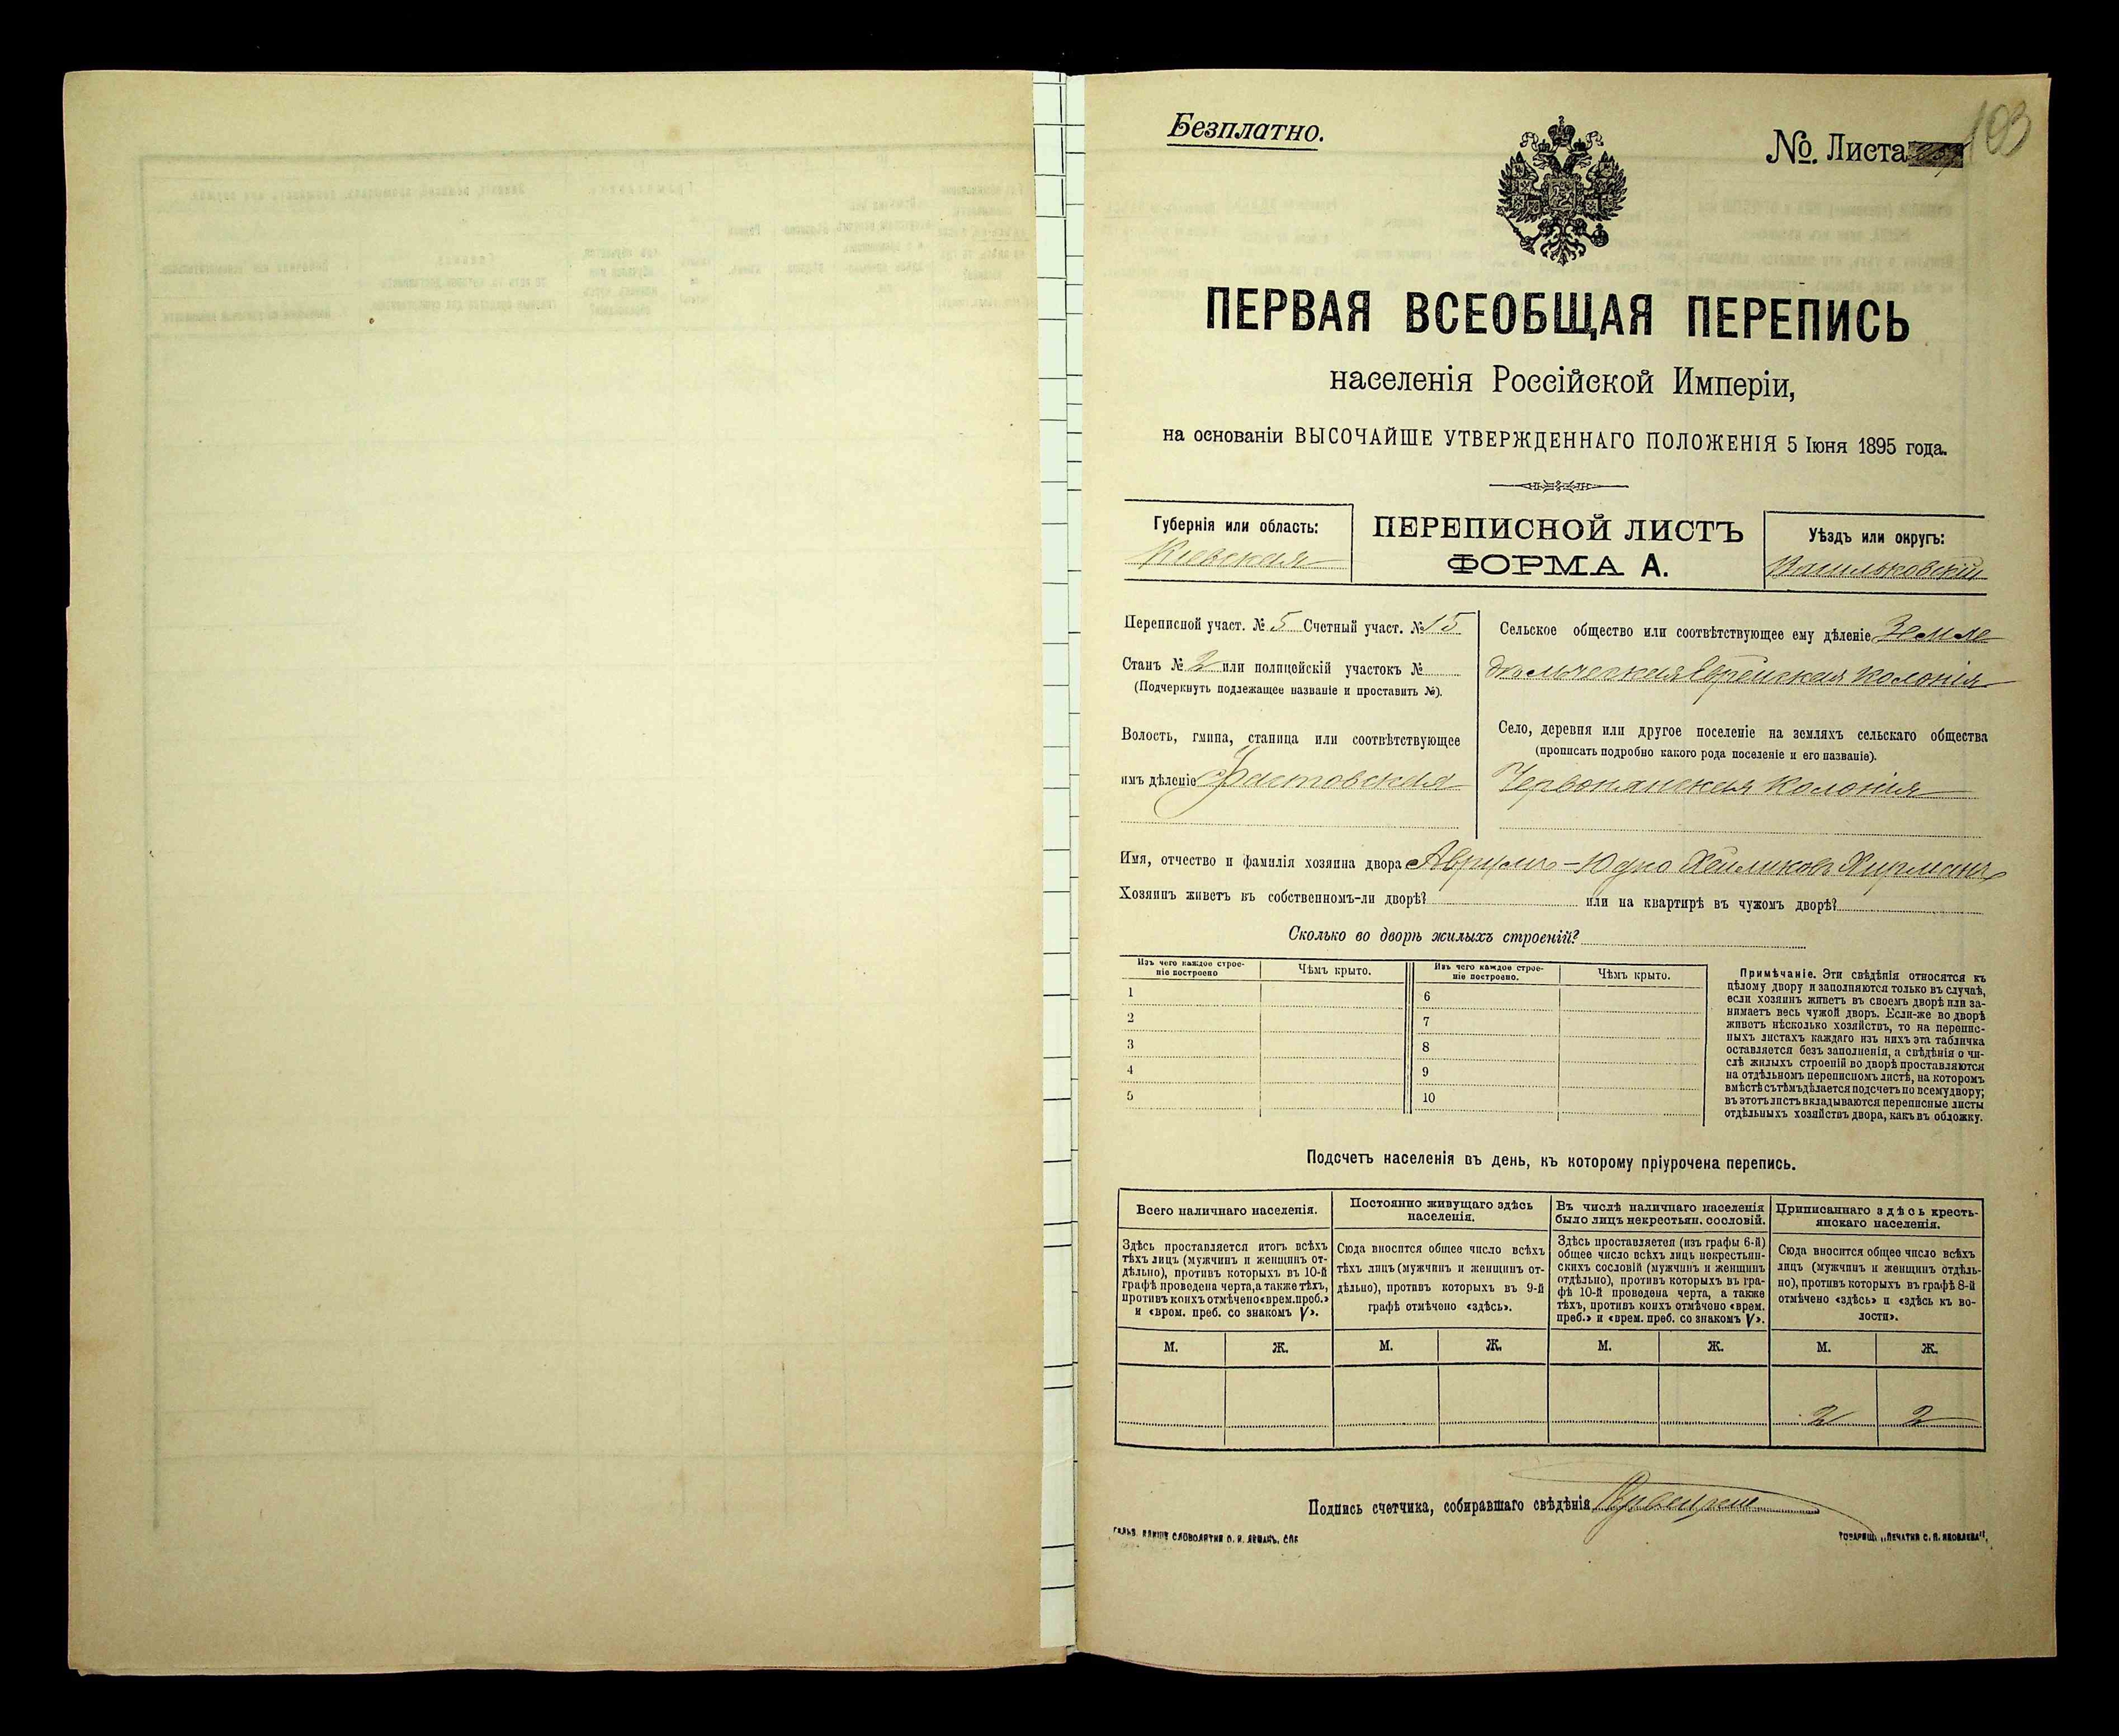 Безплатно.
№. Листа
103
ПЕРВАЯ ВСЕОБЩАЯ ПЕРЕПИСЬ
населенія Россійской Имперіи,
на основаніи ВЫСОЧАЙШЕ УТВЕРЖДЕННАГО ПОЛОЖЕНІЯ 5 Іюня 1895 года.
Губернія или область:
Кіевская
ПЕРЕПИСНОЙ ЛИСТЪ
ФОРМА А.
Уѣздъ или округъ:
Васильковскій
Переписной участ. № 5 Счетный участ. № 15
Станъ № 2 или полицейскій участокъ №
(Подчеркнуть подлежащее названіе и проставить №).
Волость, гмина, станица или соотвѣтствующее
имъ дѣленіе Фастовская
Сельское общество или соотвѣтствующее ему дѣленіе Земле
дѣльческая Еврейская колонія
Село, деревня или другое поселеніе на земляхъ сельскаго общества
(прописать подробно какого рода поселеніе и его названіе).
Червонянская колонія
Имя, отчество и фамилія хозяина двора Аврумъ-Юдко
Хозяинъ живетъ въ собственномъ-ли дворѣ? или на квартирѣ въ чужомъ дворѣ?
Сколько во дворѣ жилыхъ строеній?
Изъ чего каждое строе-
ніе построено
Чѣмъ крыто.
Изъ чего каждое строе-
ніе построено.
Чѣмъ крыто.
1
2
3
4
5
6
7
8
9
10
Примѣчаніе. Эти свѣдѣнія относятся къ
цѣлому двору и заполняются только въ случаѣ,
если хозяинъ живетъ въ своемъ дворѣ или за-
нимаетъ весь чужой дворъ. Если-же во дворѣ
живетъ нѣсколько хозяйствъ, то на перепис-
ныхъ листахъ каждаго изъ нихъ эта табличка
оставляется безъ заполненія, а свѣдѣнія о чи-
слѣ жилыхъ строеній во дворѣ проставляются
на отдѣльномъ переписномъ листѣ, на которомъ
вмѣстѣ съ тѣмъ дѣлается подсчетъ по всему двору;
въ этотъ листъ вкладываются переписные листы
отдѣльныхъ хозяйствъ двора, какъ въ обложку.
Подсчетъ населенія въ день, къ которому пріурочена перепись.
Всего наличнаго населенія.
Здѣсь проставляется итогъ всѣхъ
тѣхъ лицъ (мужчинъ и женщинъ от-
дѣльно), противъ которыхъ въ 10-й
графѣ проведена черта, а также тѣхъ,
противъ коихъ отмѣчено «врем. проб.»
и «вром. преб. со знакомъ V».
Постоянно живущаго здѣсь
населенія.
Сюда вносится общее число всѣхъ
тѣхъ лицъ (мужчинъ и женщинъ от-
дѣльно), противъ которыхъ въ 9-й
графѣ отмѣчено «здѣсь».
Въ числѣ наличнаго населенія
было лицъ некрестьян. сословій.
Здѣсь проставляется (изъ графы 6-й)
общее число всѣхъ лицъ некрестьян-
скихъ сословій (мужчинъ и женщинъ
отдѣльно), противъ которыхъ въ гра-
фѣ 10-й проведена черта, а также
тѣхъ, противъ коихъ отмѣчено «врем.
преб.» и «врем. преб. со знакомъ V».
Приписаннаго здѣсь кресть-
янскаго населенія.
Сюда вносится общее число всѣхъ
лицъ (мужчинъ и женщинъ отдѣль-
но), противъ которыхъ въ графѣ 8-й
отмѣчено «здѣсь» и «здѣсь къ во-
лости».
М. Ж. М. Ж. М. Ж. М. Ж.
2 2
Подпись счетчика, собиравшаго свѣдѣнія
СЛОВОЛИТНЯ О. И. ЛЕМАНЪ, СПБ
ТОВАРИЩ. „ПЕЧАТНЯ С. П. ЯКОВЛЕВА".